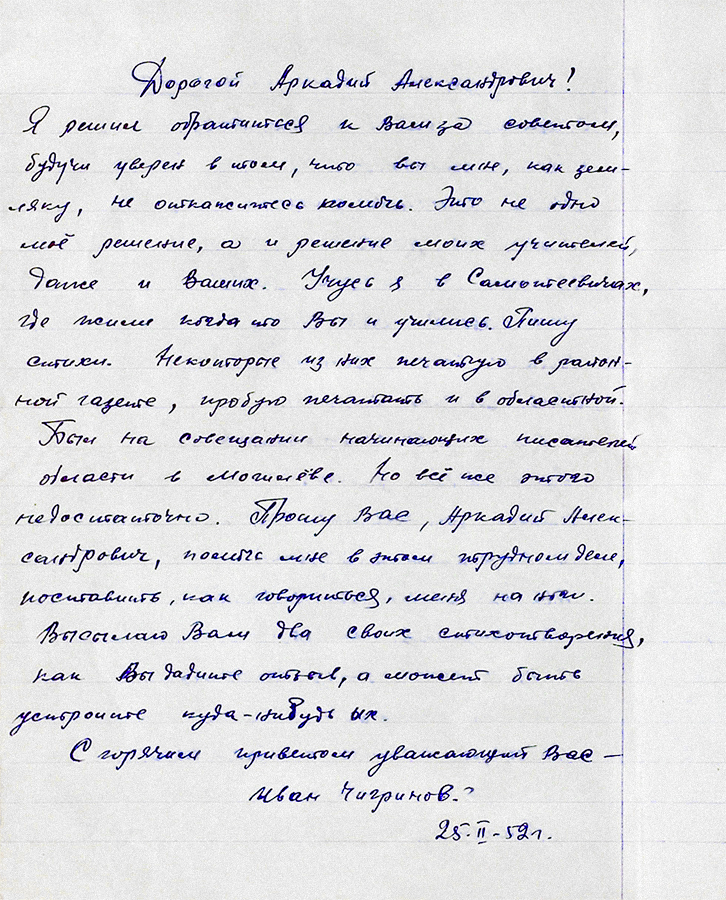 Дорогой Аркадий Александрович!
Я решил обратиться к Вам за советом,
будучи уверен в том, что вы мне, как зем-
ляку, не откажитесь помочь. Это не одно
моё решение, а и решение моих учителей,
даже и Ваших. Учусь я в Самотеевичах,
где жили когда то Вы и учились. Пишу
стихи. Некоторые из них печатую в район-
ной газете, пробую печатать и в областной.
Был на совещании начинающих писателей
области в Могилёве. Но всё же этого
недостаточно. Прошу Вас, Аркадий Алек-
сандрович, помочь мне в этом трудном деле,
поставить, как говориться, меня на
Высылаю Вам два своих стихотворения,
как Вы дадите отзыв, а может быть
устроите куда-нибудь их.
С горячим приветом уважающий Вас —
Иван Чигринов.
25-II-52г.